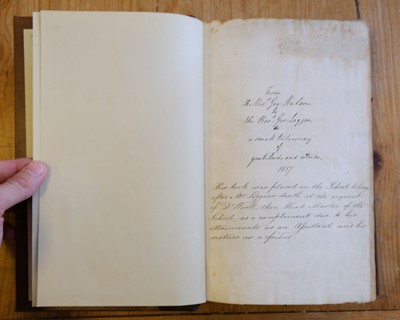 From
the Revd. Geo.
to
the Revd. Geo.
a small testimony
of
gratitude and esteem.
1817
This book was placed on the School library
after Mr death at the request
of Dr then Head Master of the
School as a compliment due to his
attainments as an and his
as a